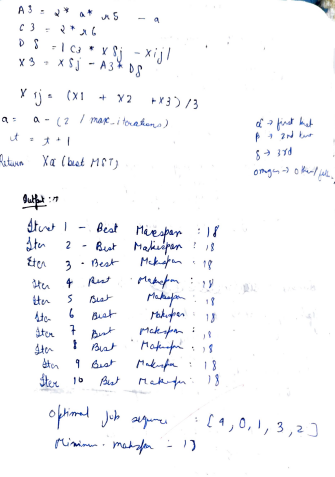 A3 = 2* a* r5 - a
C3 = 2* r6
Dδ = |C3 * Xδj - Xij|
X3 = Xδj - A3* Dδ
Xij = (X1 + X2 + X3) / 3
a = a - (2 / max_iterations)
t = t + 1
Return Xα (best MST)
α → first best
β → 2nd best
δ → 3rd
omega → other
Output :-
Iterat 1 - Best Makespan : 18
Iter 2 - Best Makespan : 18
Iter 3 - Best Makespan : 18
Iter 4 Best Makespan : 18
Iter 5 Best Makespan : 18
Iter 6 Best Makespan : 18
Iter 7 Best Makespan : 18
Iter 8 Best Makespan : 18
Iter 9 Best Makespan : 18
Iter 10 Best Makespan : 18
Optimal job sequence : [4, 0, 1, 3, 2]
Minimum makespan =